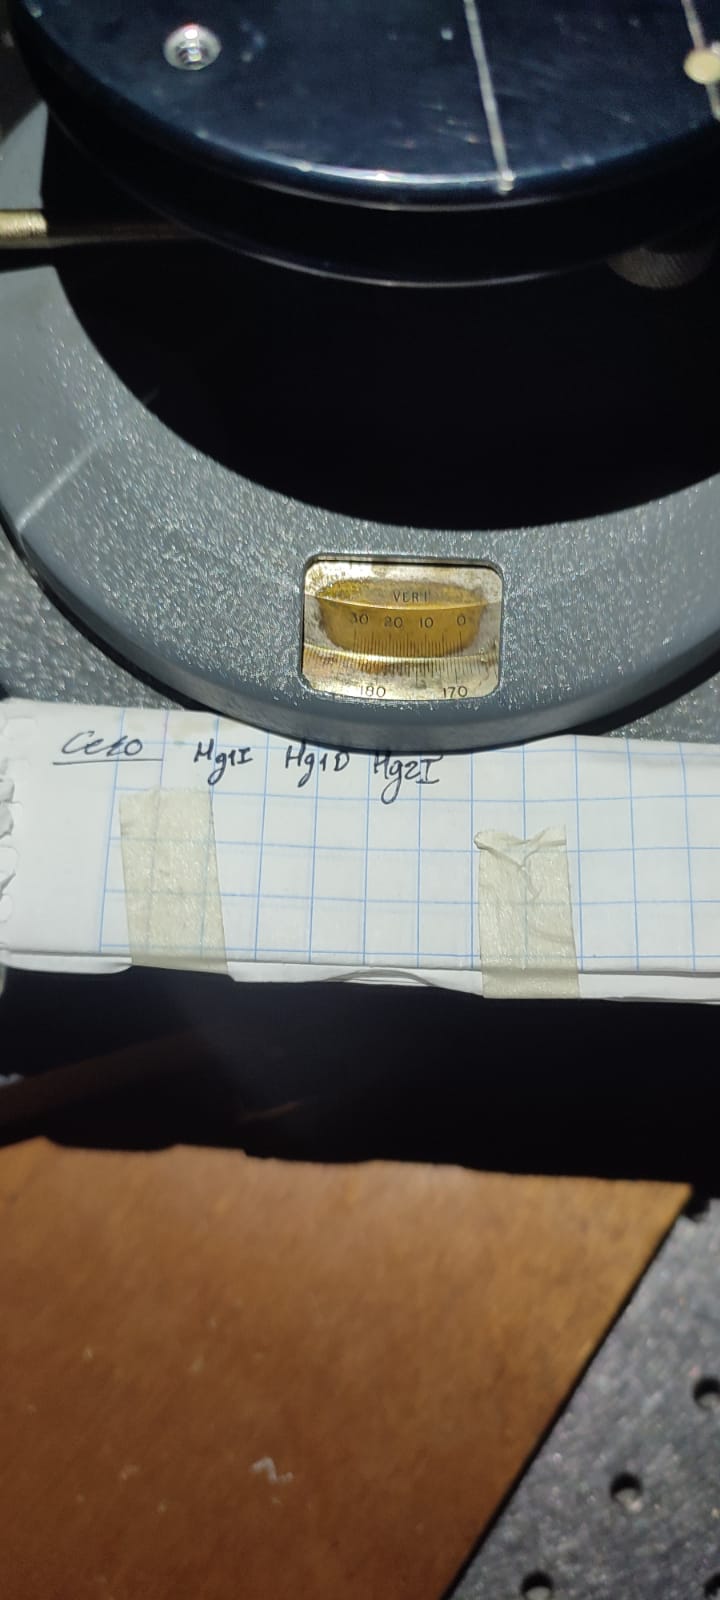 VERI
30 20 10 0
180 170
Cero Hg1I Hg1D Hg2I